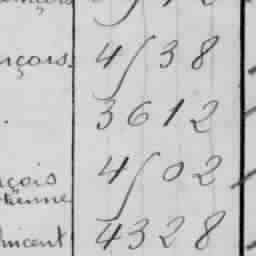 nçois. 4538
3612
nçois 4502
tienne
incent 4328